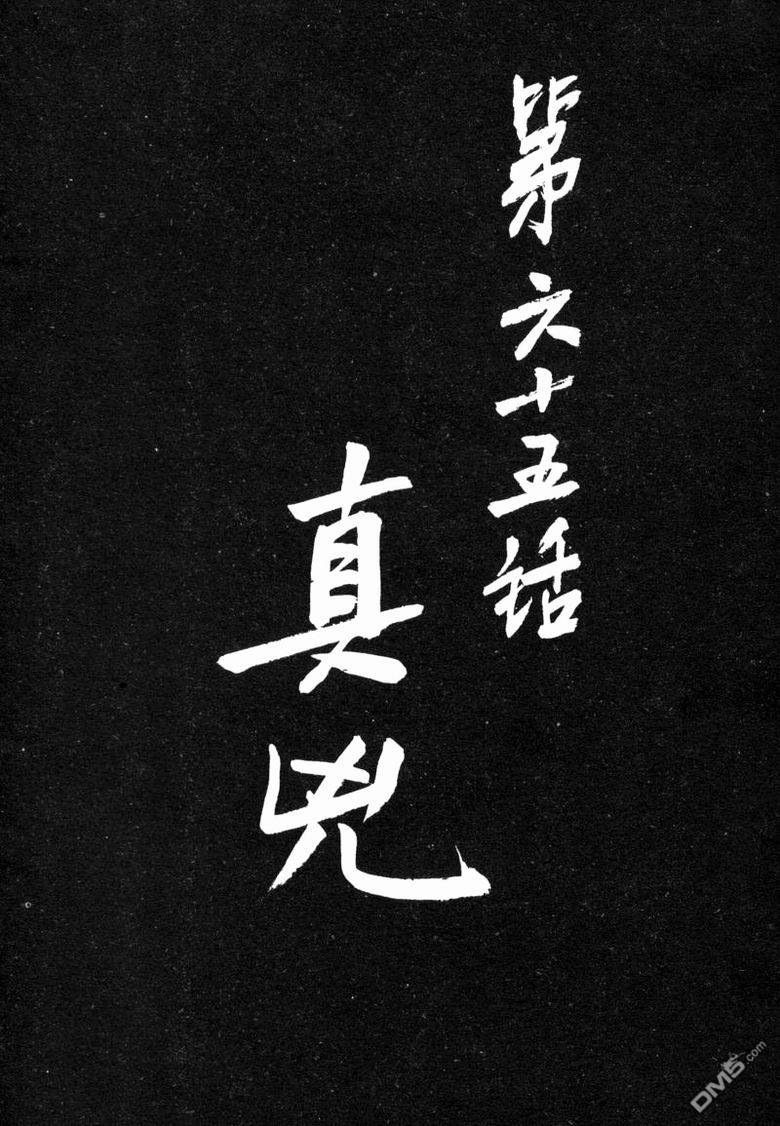 第六十五话
真兇
DM5.com